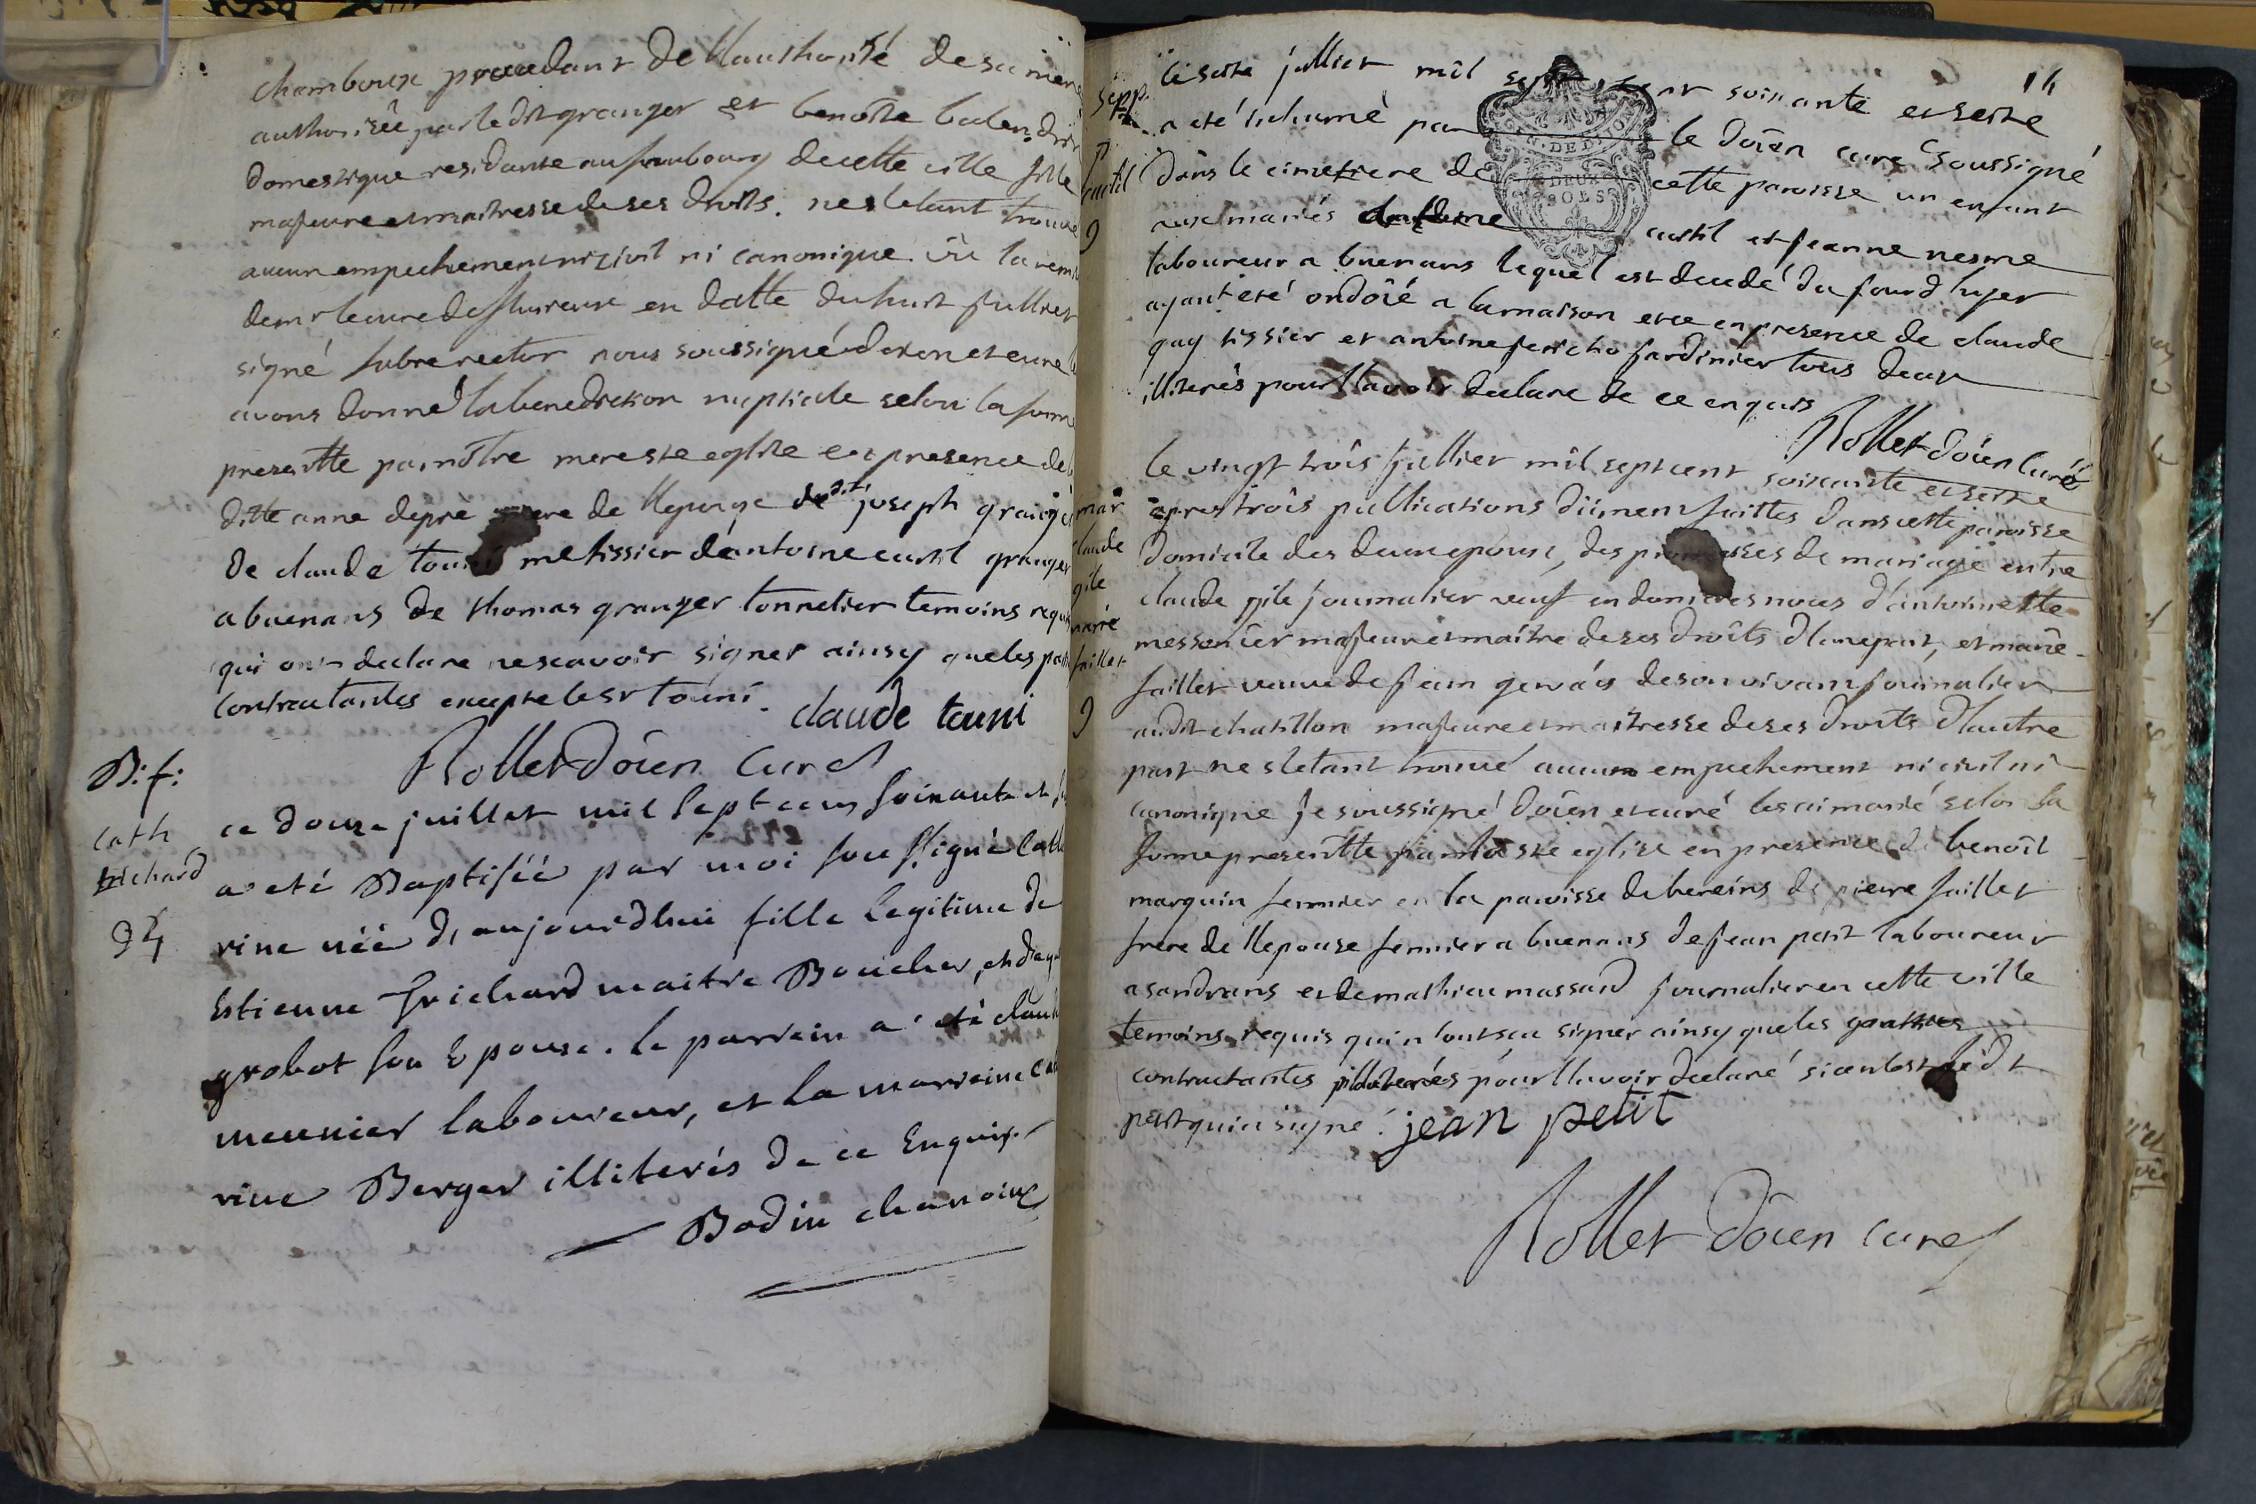 chamboux procedant de l lauthorité de sa mere
authorisée par ledit granger et benoite
domestique residante au fauxbourg de cette ville fille
majeure et maitresse de ses droits. nes letant trouvé
aucun empechement ni civil ni canonique. vu la remise
de mr le cure de fluirieux en datte du huit jullier
signé fabre rector nous soussigné doien et curé
avons donné la benediction nuptiale selon la forme
prescritte par nôtre mere ste eglise en presence de la
ditte anne depré mere de llepouge dudit joseph
de claude touni me tissier de antoine curtil granger
a buenans de thomas granger tonnelier temoins requis
qui ont declare ne scavoir signer ainsy que les parties
contractantes excepte le sr touni. claude touni
Rollet doïen curé
B: f:
cath
trichard
94
ce douze juillet mil sept cens soixante et
a eté Baptisée par moi soussigné cathe
rine née d'aujourdhui fille legitime de
Estienne trichard maitre Boucher, et
grobot son Epouse. le parrein a été claude
meunier laboureur, et la marreine cathe
rine Berger illiterés de ce Enquis.
Bodin chanoine
14
sepp.
curtil
9
le seize jullier mil sept cent soixante et seize
a eté inhumé par le doïen curé soussigné
dans le cimetiere de cette paroisse un enfant
aux mariés curtil et jeanne nesme
laboureur a buenans lequel est decedé du jourd hyer
ayant eté ondoïé a la maison et ce en presence de claude
guy tissier et antoine jericho jardinier tous deux
illiterés pour llavoir declare de ce enquis
Rollet doïen curé
mar
claude
pile
marie
faillet
9
le vingt trois jullier mil sept cent soixante et seize
apres trois publications düment faittes dans cette paroisse
domicile des deux epoux, des promesses de mariage entre
claude pile journalier veuf en dernieres noces d'antoinette
messonier majeur et maître de ses droits d lune part, et marie
faillet veuve de jean gervais de son vivant journalier
audit chatillon majeure et maitresse de ses droits d lautre
part ne s letant trouvé aucun empechement ni civil ni
canonique je soussigné doïen et curé les ai marié selon la
forme prescritte par la ste eglise en presence de benoît
marguin fermier en la paroisse de bereins de pierre faillet
frere de llepouse fermier a buenans de jean petit laboureur
a sandrans et de mathieu massard journalier en cette ville
temoins requis qui n lont sçu signer ainsy que les
contractantes illiterés pour llavoir declaré si ce n lest ledt
petit qui a signé. jean petit
Rollet doïen curé
G. DE DIJON
DEUX
SOLS